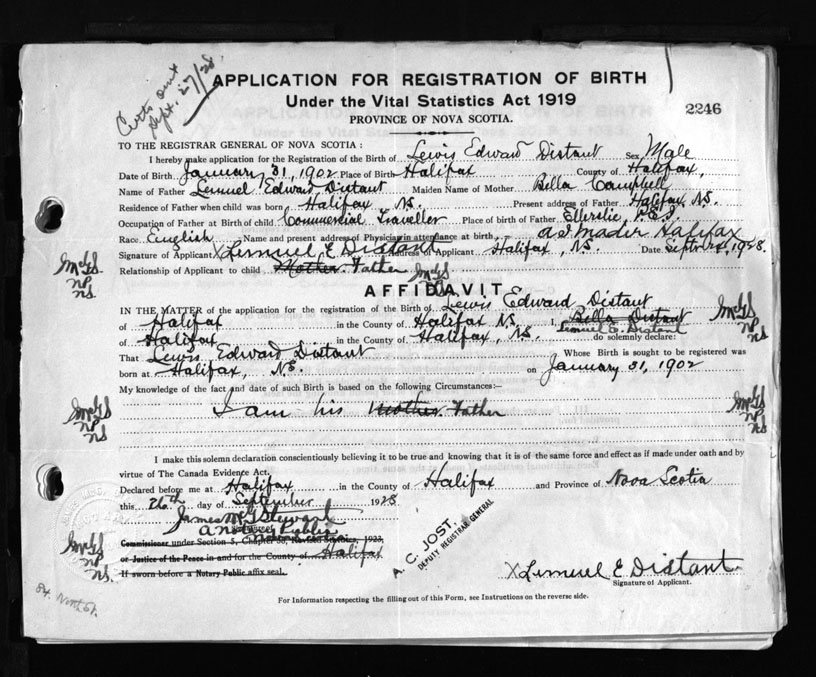 Certs sent
Sept. 27/28
APPLICATION FOR REGISTRATION OF BIRTH
Under the Vital Statistics Act 1919
PROVINCE OF NOVA SCOTIA.
2246
TO THE REGISTRAR GENERAL OF NOVA SCOTIA :
I hereby make application for the Registration of the Birth of Lewis Edward Distant Sex Male
Date of Birth January 31, 1902 Place of Birth Halifax County of Halifax,
Name of Father Lemuel Edward Distant Maiden Name of Mother Bella Campbell
Residence of Father when child was born Halifax N.S. Present address of Father Halifax, N.S.
Occupation of Father at Birth of child Commercial Traveller Place of birth of Father Ellerslie, P.E.I.
Race English Name and present address of Physician in attendance at birth, A.I. Mader Halifax
Signature of Applicant X Lemuel E Distant Address of Applicant Halifax, N.S. Date Sept. 1928.
Relationship of Applicant to child Mother. Father
McGS
NP
NS.
AFFIDAVIT
IN THE MATTER of the application for the registration of the Birth of Lewis Edward Distant
of Halifax in the County of Halifax N.S. I, Bella Distant
Lemuel E. Distant
of Halifax, in the County of Halifax, N.S. do solemnly declare:
That Lewis Edward Distant Whose Birth is sought to be registered was
born at Halifax, N.S. on January 31, 1902
My knowledge of the fact and date of such Birth is based on the following Circumstances:—
I am his mother. Father
I make this solemn declaration conscientiously believing it to be true and knowing that it is of the same force and effect as if made under oath and by
virtue of The Canada Evidence Act.
Declared before me at Halifax in the County of Halifax and Province of Nova Scotia
this 26th day of September 1928
James McG Stewart
A Notary Public
Commissioner under Section 5, Chapter 38, Revised Statutes, 1923,
or Justice of the Peace in and for the County of Halifax
If sworn before a Notary Public affix seal.
A. C. JOST.
DEPUTY REGISTRAR GENERAL
X Lemuel E Distant
Signature of Applicant.
For Information respecting the filling out of this Form, see Instructions on the reverse side.